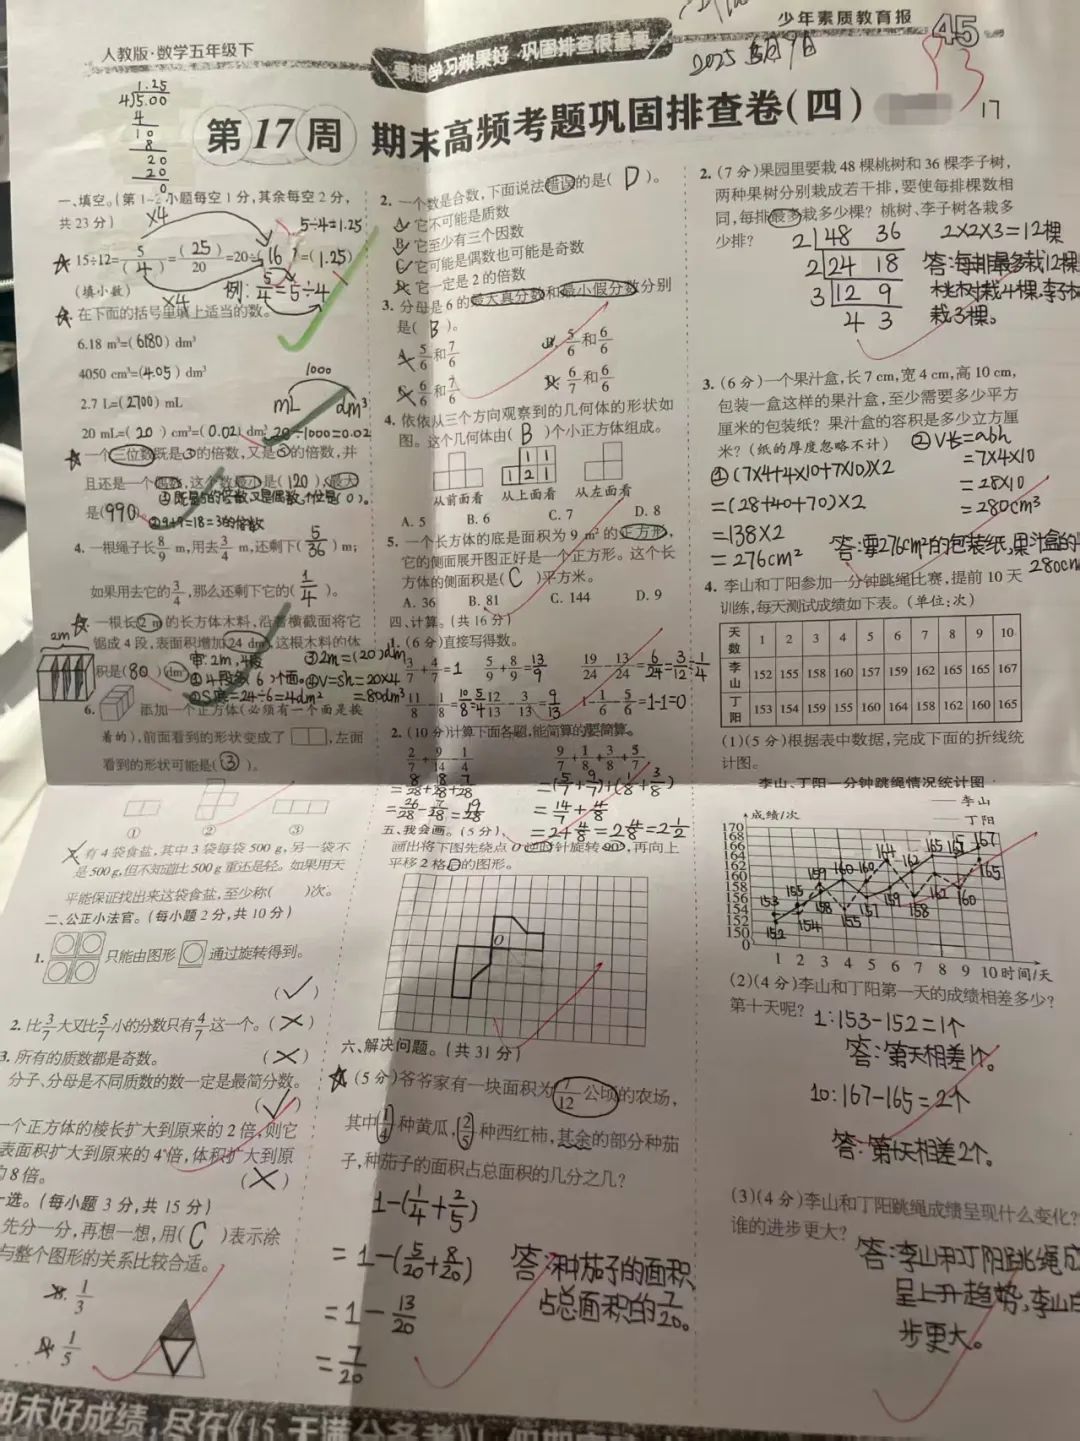 少年素质教育报
45
人教版·数学五年级下
要想学习效果好 巩固排查很重要
2025
93
第17周 期末高频考题巩固排查卷(四)
17
1.25
4)5.00
4
10
8
20
20
0
一、填空。(第1~2小题每空1分,其余每空2分,
共23分)
×4
5÷4=1.25
15÷12=5/(4)=(25)/20=20÷(16)=(1.25)
(填小数)
×4
例:5/4=5÷4
在下面的括号里填上适当的数。
6.18 m³=(6180) dm³
4050 cm³=(4.05) dm³
1000
2.7 L=(2700) mL
mL dm³
20 mL=(20) cm³=(0.02) dm³ 20÷1000=0.02
一个三位数既是3的倍数,又是5的倍数,并
且还是一个偶数,这个数最小是(120),最大
是(990)
①既是5的倍数又是偶数,个位是(0)。
②9+9=18=3的倍数
4. 一根绳子长8/9 m,用去3/4 m,还剩下(5/36) m;
如果用去它的3/4,那么还剩下它的(1/4)。
一根长2 m的长方体木料,沿着横截面将它
锯成4段,表面积增加24 dm²,这根木料的体
2m
积是(80) dm³
审:2m,4段
③2m=(20)dm
①4段多(6)个面。
④V=Sh=20×4
②S底=24÷6=4dm²
=80dm³
6.
添加一个正方体(必须有一个面是挨
着的),前面看到的形状变成了
,左面
看到的形状可能是(③)。
① ② ③
有4袋食盐,其中3袋每袋500 g,另一袋不
是500 g,但不知道比500 g重还是轻。如果用天
平能保证找出来这袋食盐,至少称( )次。
二、公正小法官。(每小题2分,共10分)
1.
只能由图形
通过旋转得到。
(✓)
2. 比3/7大又比5/7小的分数只有4/7这一个。(×)
3. 所有的质数都是奇数。 (×)
分子、分母是不同质数的数一定是最简分数。
(✓)
一个正方体的棱长扩大到原来的2倍,则它
表面积扩大到原来的4倍,体积扩大到原
的8倍。 (×)
选。(每小题3分,共15分)
先分一分,再想一想,用(C)表示涂
与整个图形的关系比较合适。
B. 1/3
D. 1/5
2. 一个数是合数,下面说法错误的是(D)。
A. 它不可能是质数
B. 它至少有三个因数
C. 它可能是偶数也可能是奇数
D. 它一定是2的倍数
3. 分母是6的最大真分数和最小假分数分别
是(B)。
A. 5/6和7/6 B. 5/6和6/6
C. 6/6和7/6 D. 6/7和6/6
4. 依依从三个方向观察到的几何体的形状如
图。这个几何体由(B)个小正方体组成。
1 1
1 2 1
从前面看 从上面看 从左面看
A. 5 B. 6 C. 7 D. 8
5. 一个长方体的底是面积为9 m²的正方形,
它的侧面展开图正好是一个正方形。这个长
方体的侧面积是(C)平方米。
A. 36 B. 81 C. 144 D. 9
四、计算。(共16分)
1. (6分)直接写得数。
3/7+4/7=1 5/9+8/9=13/9 19/24-13/24=6/24=3/12=1/4
11/8-1/8=10/8=5/4 12/13-3/13=9/13 1-1/6-5/6=1-1=0
2. (10分)计算下面各题,能简算的要简算。
2/7+9/14-1/4
=8/28+18/28-7/28
=26/28-7/28=19/28
9/7+1/8+3/8+5/7
=(5/7+9/7)+(1/8+3/8)
=14/7+4/8
=2+4/8=2 4/8=2 1/2
五、我会画。(5分)
画出将下图先绕点O逆时针旋转90°,再向上
平移2格后的图形。
O
六、解决问题。(共31分)
(5分)爷爷家有一块面积为7/12公顷的农场,
其中1/4种黄瓜,2/5种西红柿,其余的部分种茄
子,种茄子的面积占总面积的几分之几?
1-(1/4+2/5)
=1-(5/20+8/20)
=1-13/20
=7/20
答:种茄子的面积
占总面积的7/20。
2. (7分)果园里要栽48棵桃树和36棵李子树,
两种果树分别栽成若干排,要使每排棵数相
同,每排最多栽多少棵?桃树、李子树各栽多
少排?
2 48 36
2 24 18
3 12 9
4 3
2×2×3=12棵
答:每排最多栽12棵
桃树栽4棵,李子树
栽3棵。
3. (6分)一个果汁盒,长7 cm,宽4 cm,高10 cm,
包装一盒这样的果汁盒,至少需要多少平方
厘米的包装纸?果汁盒的容积是多少立方厘
米?(纸的厚度忽略不计)
①(7×4+4×10+7×10)×2
=(28+40+70)×2
=138×2
=276cm²
②V长=abh
=7×4×10
=28×10
=280cm³
答:要276cm²的包装纸,果汁盒的
280cm
4. 李山和丁阳参加一分钟跳绳比赛,提前10天
训练,每天测试成绩如下表。(单位:次)
天数 1 2 3 4 5 6 7 8 9 10
李山 152 155 158 160 157 159 162 165 165 167
丁阳 153 154 159 155 160 164 158 162 160 165
(1)(5分)根据表中数据,完成下面的折线统
计图。
李山、丁阳一分钟跳绳情况统计图
李山
丁阳
成绩/次
170
168
166
164
162
160
158
156
154
152
150
0
1 2 3 4 5 6 7 8 9 10 时间/天
(2)(4分)李山和丁阳第一天的成绩相差多少?
第十天呢?
1:153-152=1个
答:第1天相差1个。
10:167-165=2个
答:第十天相差2个。
(3)(4分)李山和丁阳跳绳成绩呈现什么变化?
谁的进步更大?
答:李山和丁阳跳绳成
呈上升趋势,李山
步更大。
期末好成绩,尽在《15天满分备考》!